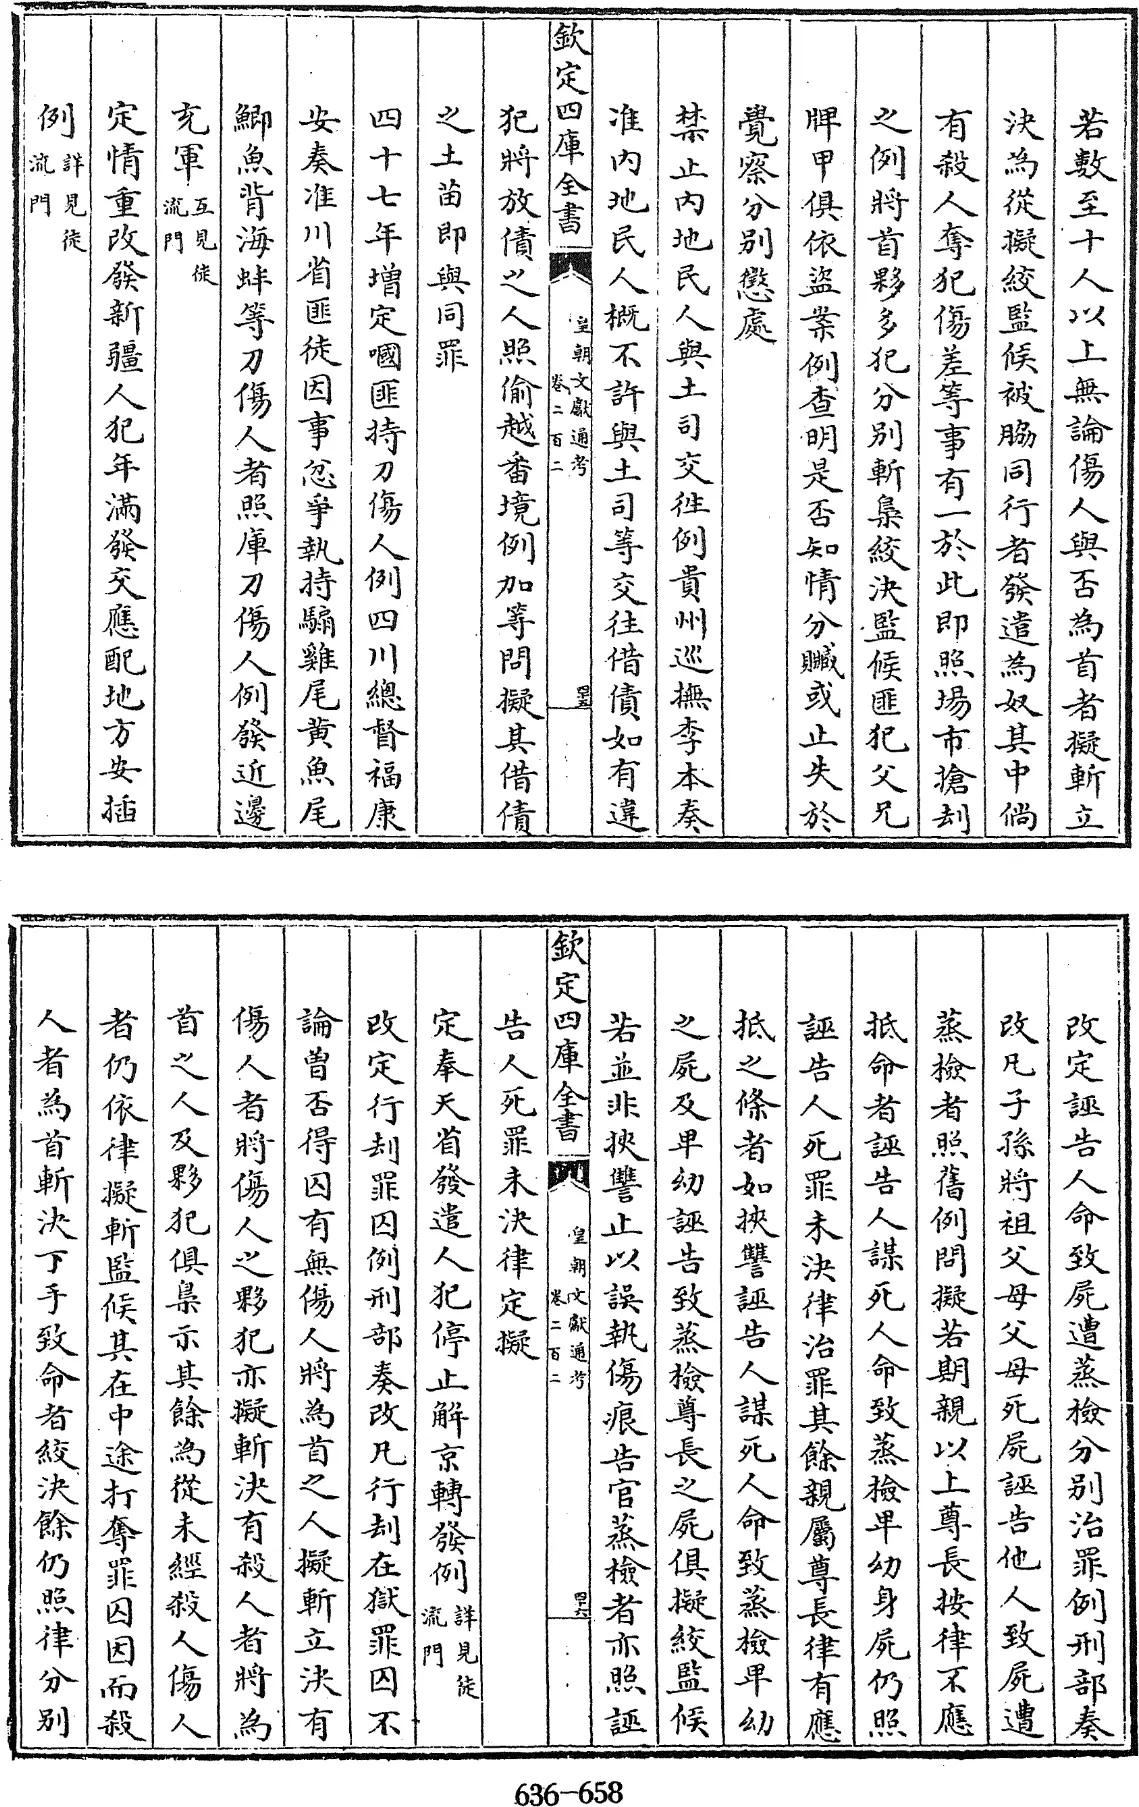 若數至十人以上無論傷人與否為首者擬斬立
決為從擬絞監候被脇同行者發遣為奴其中倘
有殺人奪犯傷差等事有一於此即照場市搶刦
之例將首夥多犯分別斬梟絞決監候匪犯父兄
牌甲俱依盜案例查明是否知情分贓或止失於
覺察分別懲處
禁止內地民人與土司交徃例貴州巡撫李本奏
准內地民人概不許與土司等交往借債如有違
欽定四庫全書
皇朝文獻通考
卷二百二
四五
犯將放債之人照偷越番境例加等問擬其借債
之土苗即與同罪
四十七年增定嘓匪持刀傷人例四川總督福康
安奏准川省匪徒因事忿爭執持騙雞尾黃魚尾
鯽魚背海蚌等刀傷人者照庫刀傷人例發近邊
充軍互見徒
流門
定情重改發新疆人犯年滿發交應配地方安插
例詳見徒
流門
改定誣告人命致屍遭蒸檢分別治罪例刑部奏
改凡子孫將祖父母父母死屍誣告他人致屍遭
蒸檢者照舊例問擬若期親以上尊長按律不應
抵命者誣告人謀死人命致蒸檢卑幼身屍仍照
誣告人死罪未決律治罪其餘親屬尊長律有應
抵之條者如挾讐誣告人謀死人命致蒸檢卑幼
之屍及卑幼誣告致蒸檢尊長之屍俱擬絞監候
若並非挾讐止以誤執傷痕告官蒸檢者亦照誣
欽定四庫全書
皇朝文獻通考
卷二百二
四六
告人死罪未決律定擬
定奉天省發遣人犯停止解京轉發例詳見徒
流門
改定行刦罪囚例刑部奏改凡行刦在獄罪囚不
論曽否得囚有無傷人將為首之人擬斬立決有
傷人者將傷人之夥犯亦擬斬決有殺人者將為
首之人及夥犯俱梟示其餘為從未經殺人傷人
者仍依律擬斬監候其在中途打奪罪囚因而殺
人者為首斬決下手致命者絞決餘仍照律分別
636-658